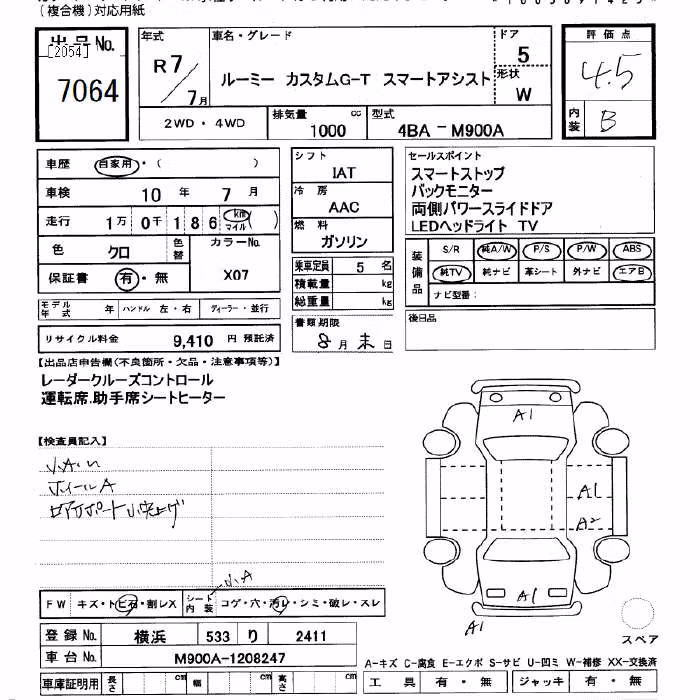 (複合機)対応用紙
出品No.
[2054]
7064
年式
R7
7月
車名・グレード
ルーミー カスタムG-T スマートアシスト
ドア
5
形状
W
2WD・4WD
排気量
1000 cc
型式
4BA-M900A
評価点
4.5
内装
B
車歴 自家用・( )
車検 10年 7月
走行 1万 0千 1 8 6 km マイル ( )
色 クロ 色替 カラーNo.
X07
保証書 有・無
モデル年式 年 ハンドル 左・右 ディーラー・並行
リサイクル料金 9,410 円 預託済
シフト
IAT
冷房
AAC
燃料
ガソリン
乗車定員 5 名
積載量 kg
総重量 kg
書類期限
8月末日
セールスポイント
スマートストップ
バックモニター
両側パワースライドドア
LEDヘッドライト TV
装備品
S/R 純A/W P/S P/W ABS
純TV 純ナビ 革シート 外ナビ エアB
ナビ型番:
後日品
【出品店申告欄(不良箇所・欠品・注意事項等)】
レーダークルーズコントロール
運転席.助手席シートヒーター
【検査員記入】
ホイールA
A1
A1
A2
A1
A1
小A
FW キズ・トビ石・割レX シート内装 コゲ・穴・汚レ・シミ・破レ・スレ
登録No. 横浜 533 り 2411
車台No. M900A-1208247
車庫証明用 長さ cm 幅 cm 高さ cm
スペア
A-キズ C-腐食 E-エクボ S-サビ U-凹ミ W-補修 XX-交換済
工具 有・無 ジャッキ 有・無